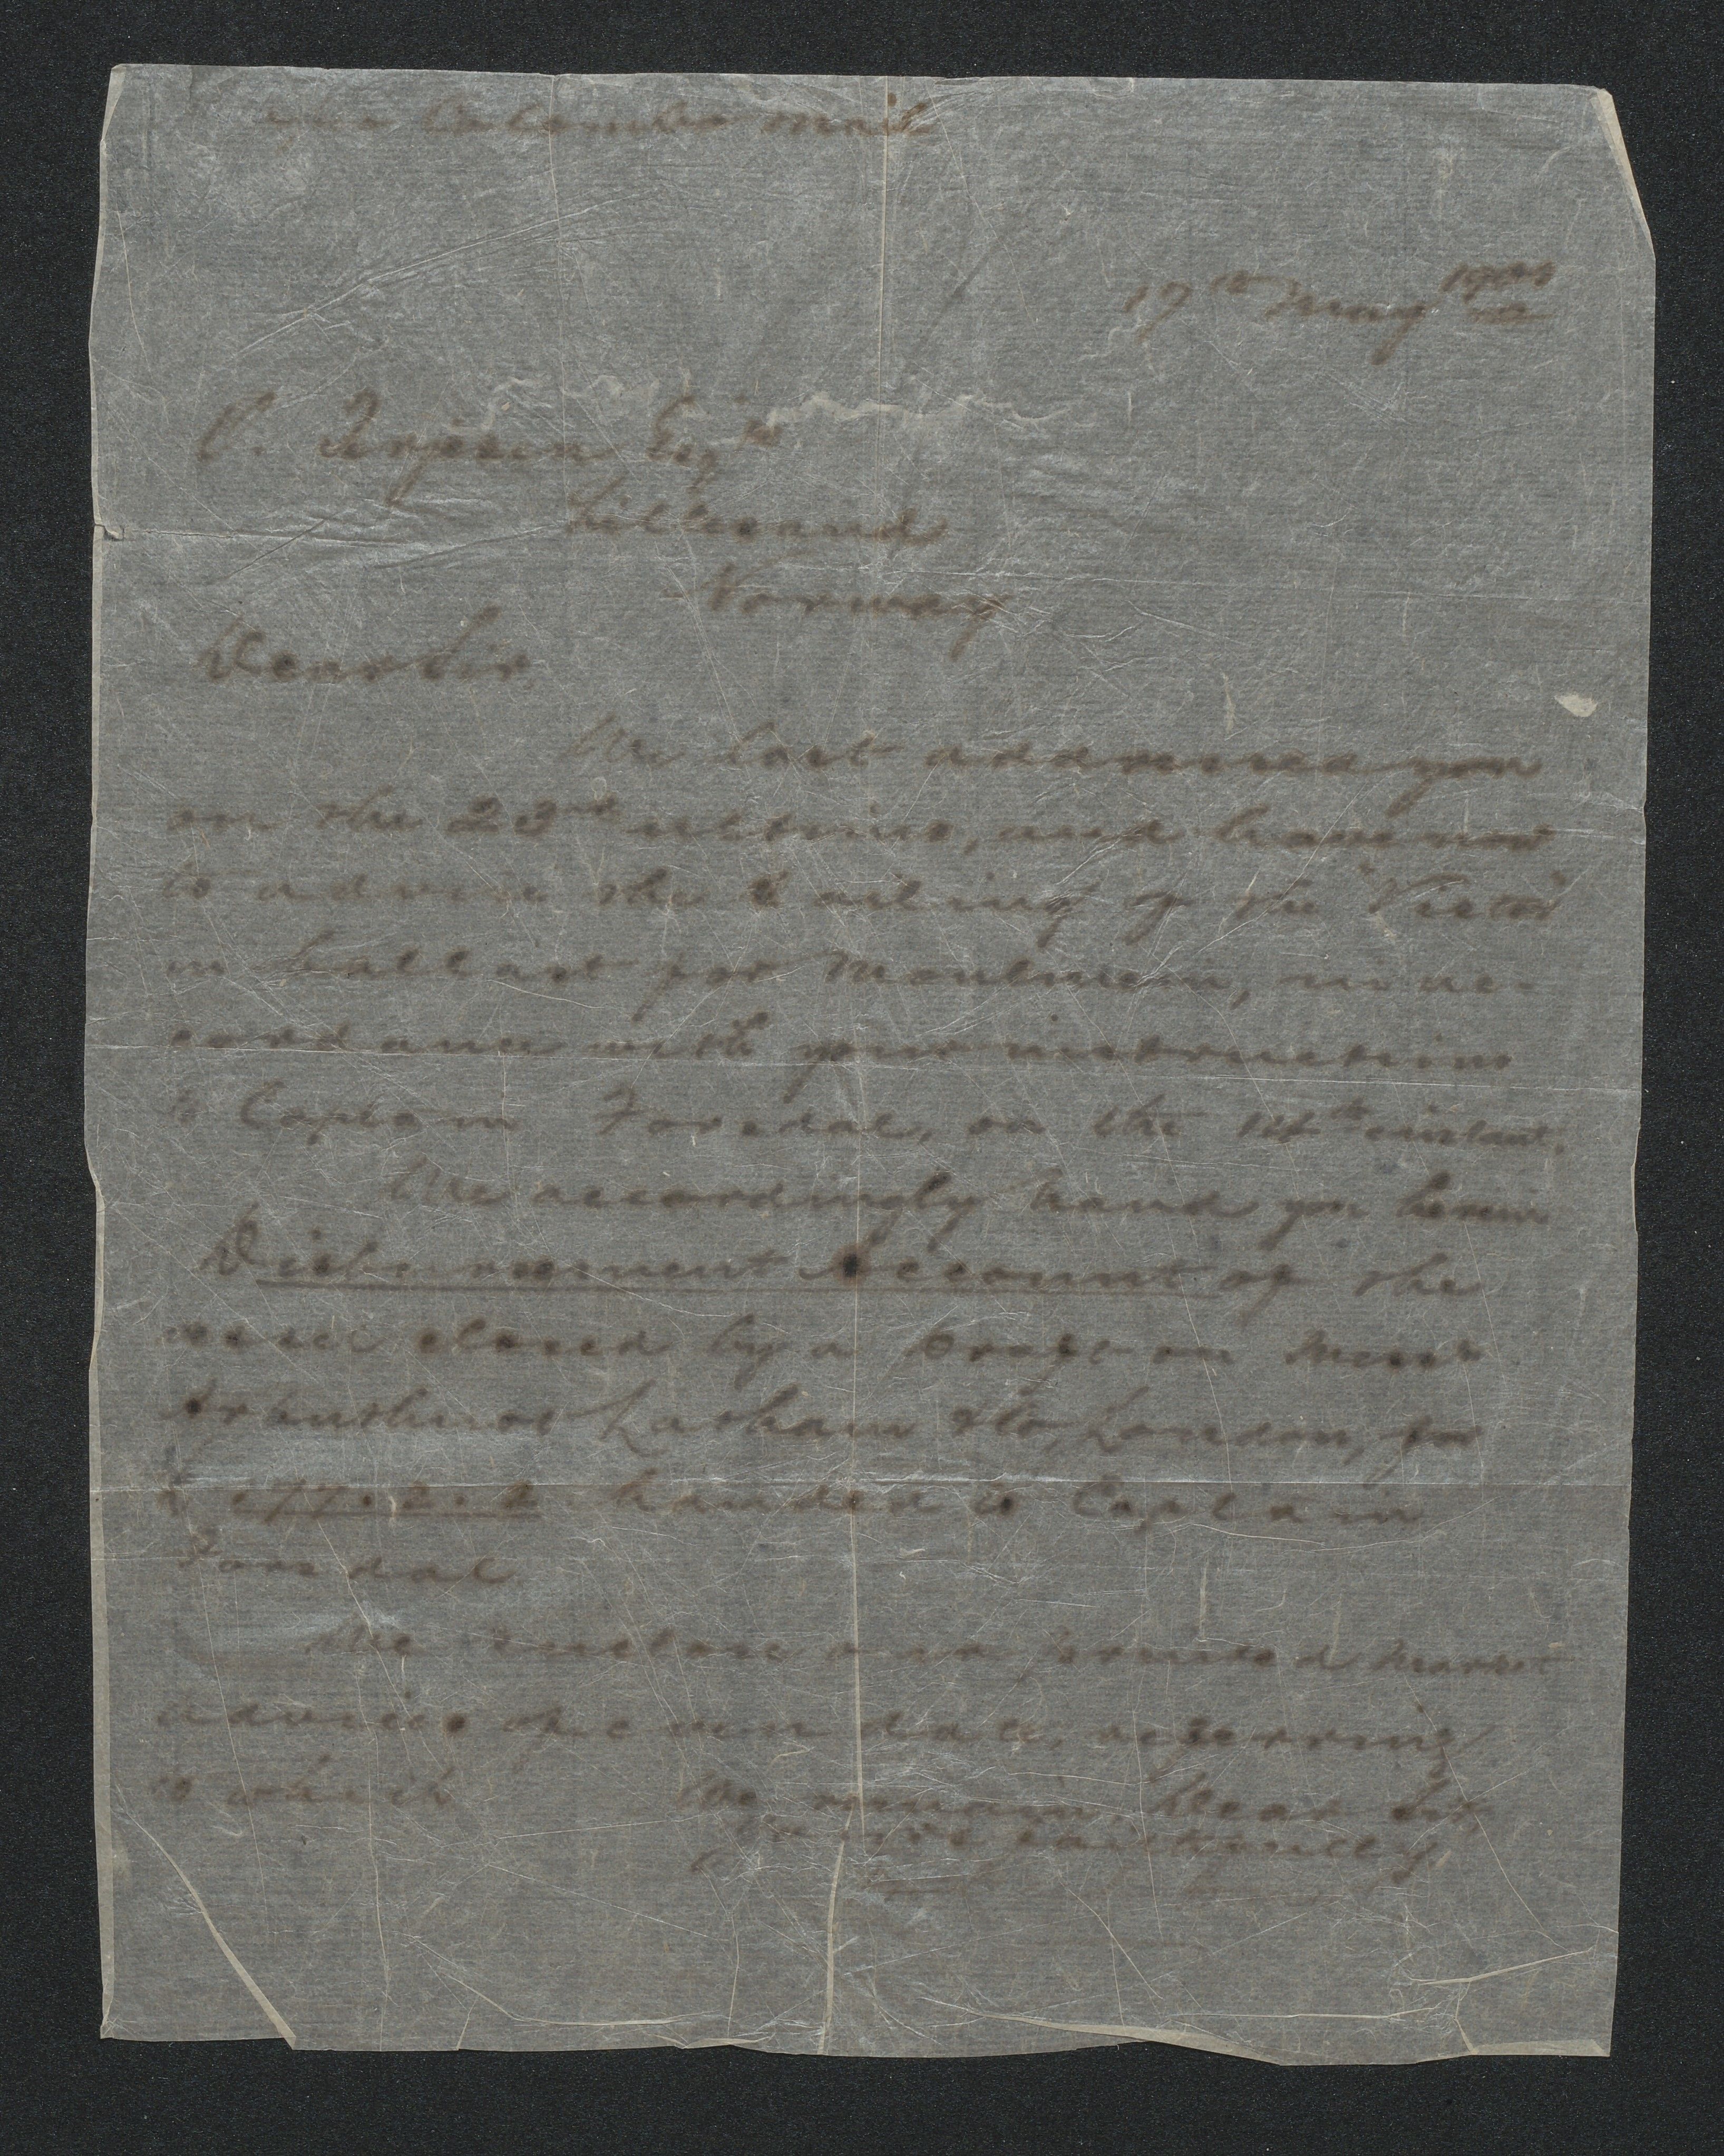 Colombo mail
17th May
O. Terjesen Esqre
Lillesand
Norway
Dear Sir
We last addressed you
on the 23rd ultimo, and have now
to advise the sailing of the "Victor"
in ballast for Moulmein, in ac-
cordance with your instructions
to Captain Forsdal, on the 14th instant.
We accordingly hand you herein
Disbursement Account of the
vessel closed by a Draft on Messrs
Arbuthnot Latham & Co, London, for
handed to Captain
Forsdal
We enclose our printed Market
advice of even date, referring
to which
We remain, Dear Sir,
Yours faithfully,